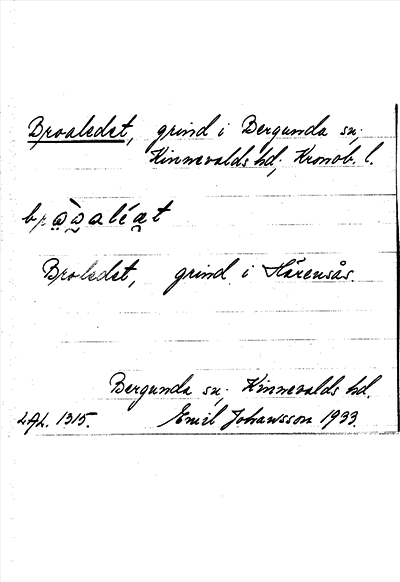 Broaledet, grind i Bergunda sn,
Kinnevalds hd, Kronob. l.
Broledet, grind i Härensås.
Bergunda sn, Kinnevalds hd.
LAL. 1315. Emil Johansson 1933.